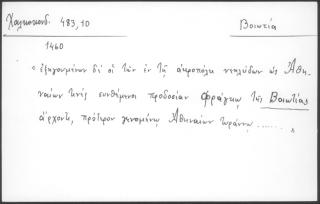 Χαλκοκονδ. 483,10 Βοιωτία
1460
«ἐξηγουμένων δέ οἱ τῶν ἐν τῇ ἀκροπόλει νεηλύδων ὡς Ἀθη-
ναίων τινὲς συνθέμενοι προδοσίαν Φράγκῳ τῆς Βοιωτίας
ἄρχοντι, πρότερον γενομένῳ Ἀθηναίων τυράννῳ .......